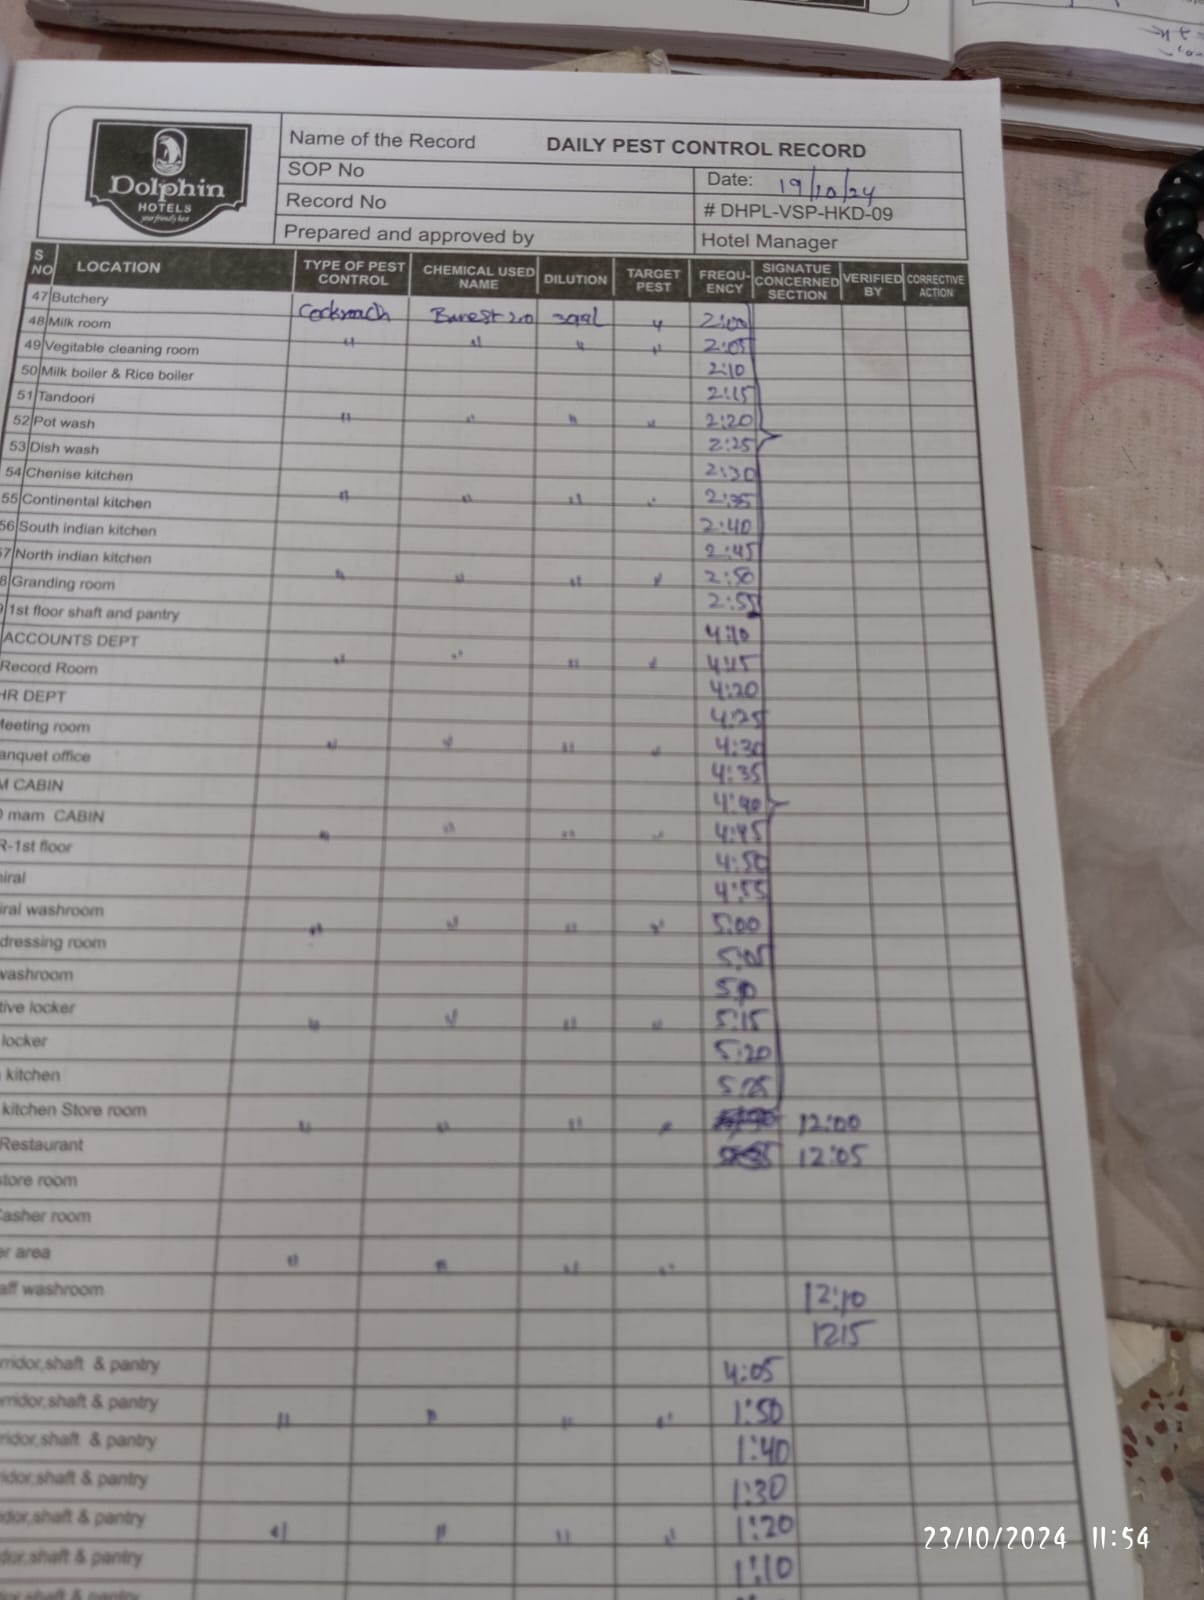 Dolphin
HOTELS
your friendly host
Name of the Record DAILY PEST CONTROL RECORD
SOP No Date: 19/10/24
Record No # DHPL-VSP-HKD-09
Prepared and approved by Hotel Manager
S NO LOCATION TYPE OF PEST CONTROL CHEMICAL USED NAME DILUTION TARGET PEST FREQU-ENCY SIGNATUE CONCERNED SECTION VERIFIED BY CORRECTIVE ACTION
47 Butchery Cockroach 2:00
48 Milk room " " " " 2:05
49 Vegitable cleaning room 2:10
50 Milk boiler & Rice boiler 2:15
51 Tandoori " " " " 2:20
52 Pot wash 2:25
53 Dish wash 2:30
54 Chenise kitchen " " " " 2:35
55 Continental kitchen 2:40
56 South indian kitchen 2:45
57 North indian kitchen " " " " 2:50
8 Granding room 2:55
1st floor shaft and pantry 4:10
ACCOUNTS DEPT " " " " 4:15
Record Room 4:20
HR DEPT 4:25
Meeting room " " " " 4:30
anquet office 4:35
M CABIN 4:40
mam CABIN " " " " 4:45
R-1st floor 4:50
niral 4:55
iral washroom " " " " 5:00
dressing room 5:05
washroom
tive locker " " " " 5:15
locker 5:20
kitchen 5:25
kitchen Store room " " " " 12:00
Restaurant 12:05
store room
Casher room
er area " " " "
aff washroom 12:10
1215
rridor,shaft & pantry 4:05
orridor,shaft & pantry " " " " 1:50
ridor,shaft & pantry 1:40
ridor,shaft & pantry 1:30
dor,shaft & pantry " " " " 1:20
dor,shaft & pantry 1:10
dor,shaft & pantry
23/10/2024 11:54